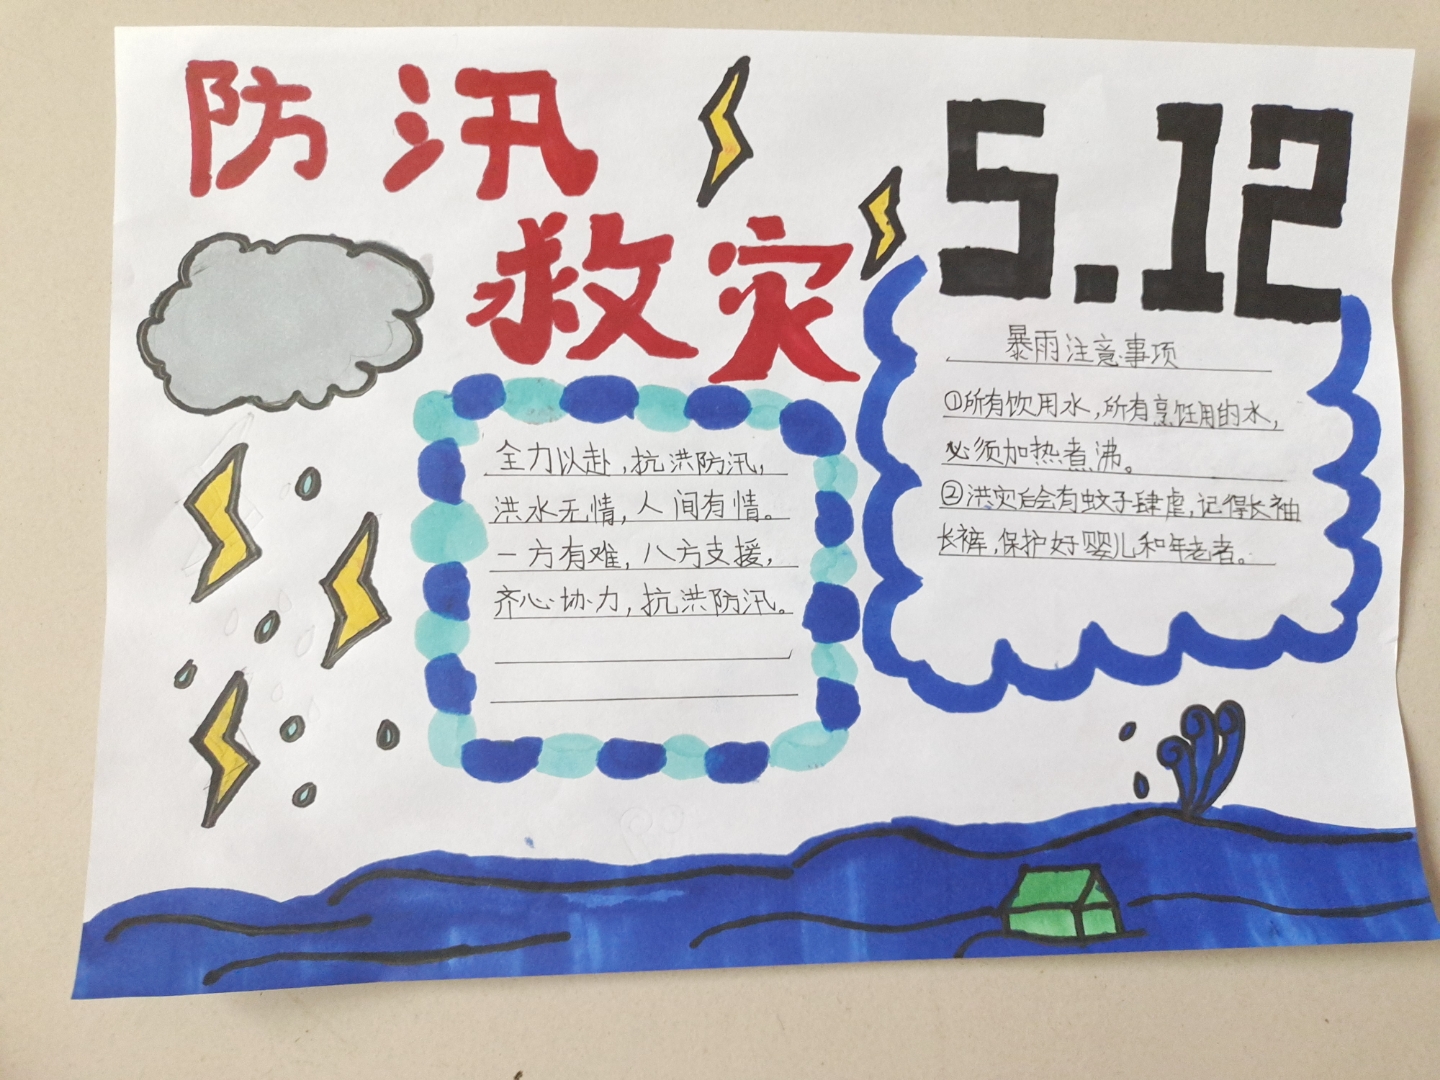 防汛
救灾
5.12
全力以赴,抗洪防汛,
洪水无情,人间有情。
一方有难,八方支援,
齐心协力,抗洪防汛。
暴雨注意事项
①所有饮用水,所有烹饪用的水,
必须加热煮沸。
②洪灾后会有蚊子肆虐,记得长袖
长裤,保护好婴儿和年老者。